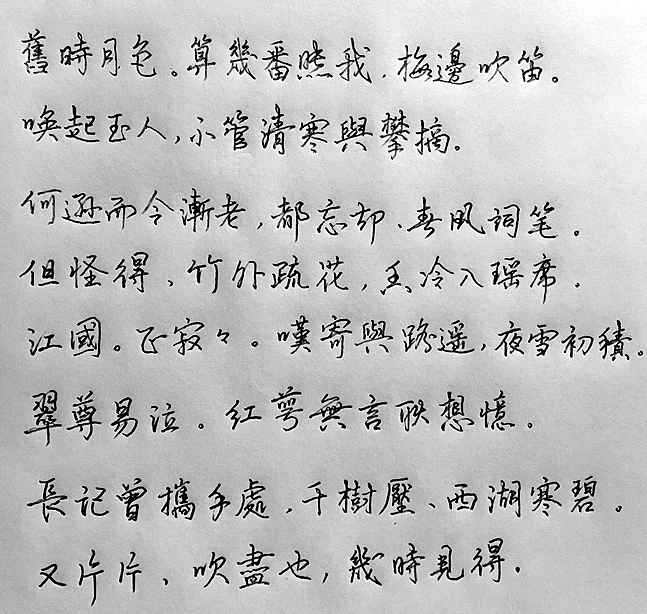 舊時月色。算幾番照我,梅邊吹笛。
喚起玉人,不管清寒與攀摘。
何遜而今漸老,都忘却、春風詞笔。
但怪得、竹外疏花,香冷入瑶席。
江國。正寂々。嘆寄與路遥,夜雪初積。
翠尊易泣。紅萼無言耿想憶。
長記曾攜手處,千樹壓、西湖寒碧。
又片片、吹盡也,幾時見得。